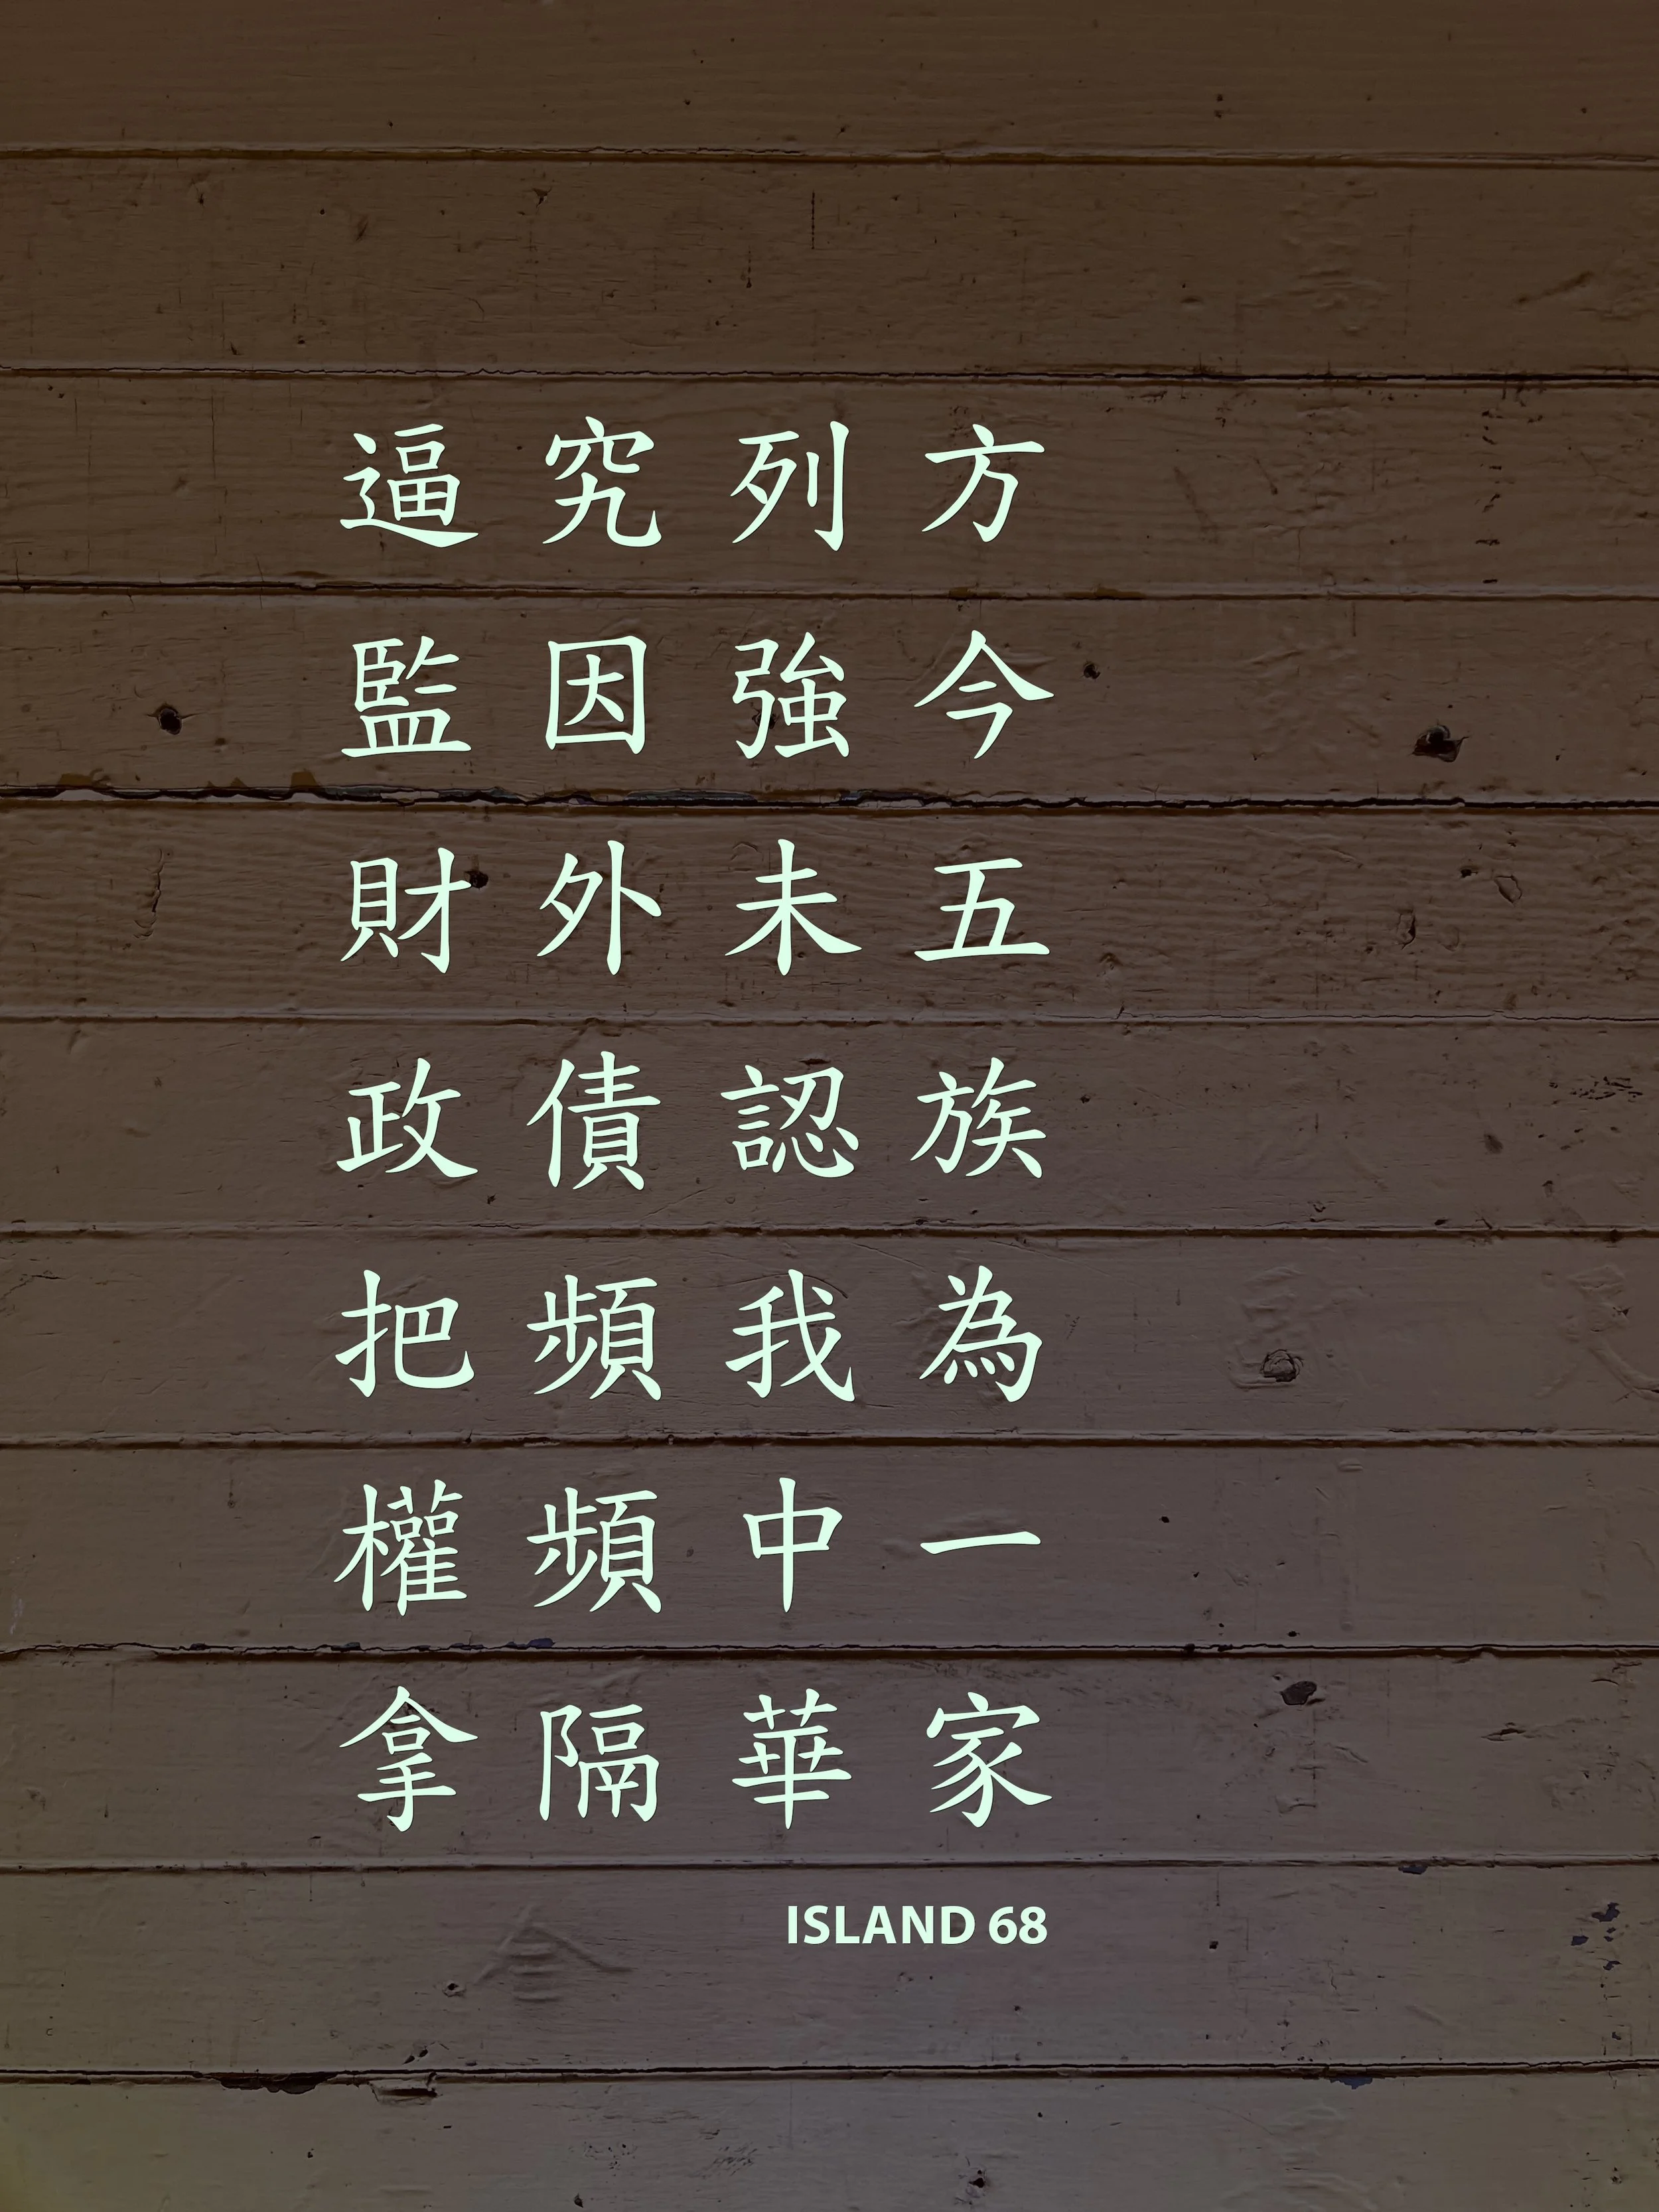 方今五族為一家
列強未認我中華
究因外債頻頻隔
逼監財政把權拿
ISLAND 68